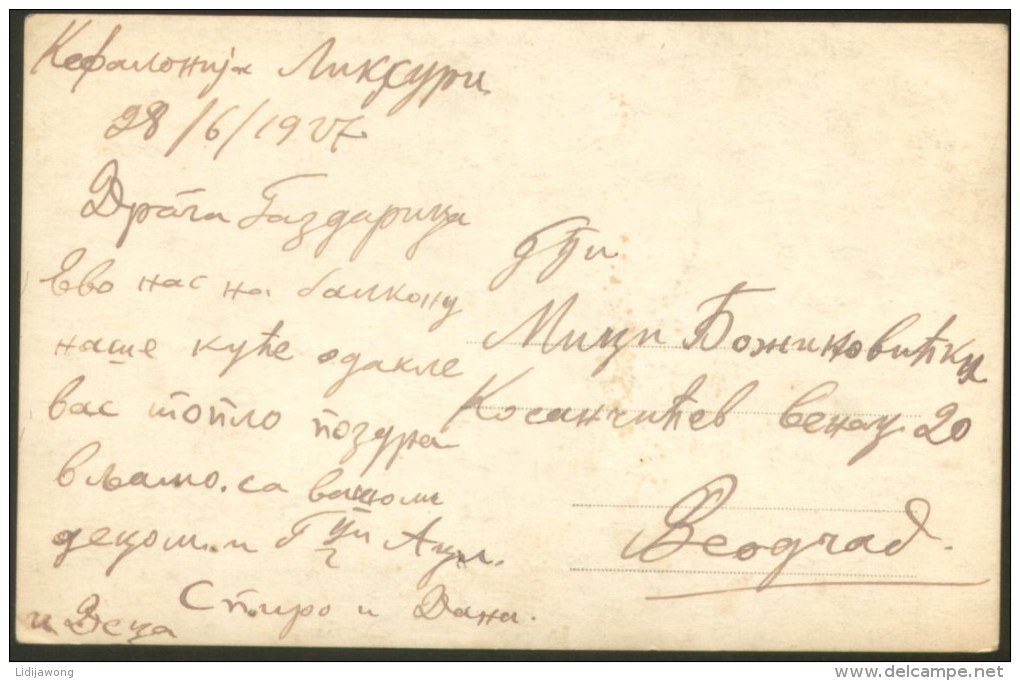 Кефалонија Ликсури
28/6/1927
Драга Газдарица
Ево нас на балкону
наше куће одакле
вас топло поздра
вљамо. са вашом
децом. и Г ци
Спиро и Дана.
и Деца
Мици Божиновићки
Косанчићев венац 20
Београд.
Lidijawong
delcampe.net